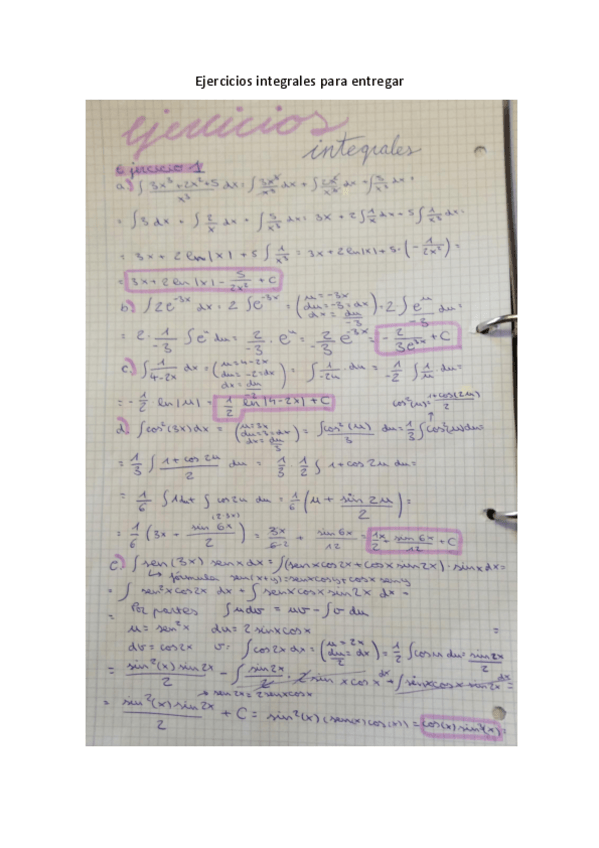 Ejercicios integrales para entregar
Ejercicios
integrales
Ejercicio 1
a) ∫ (3x³+2x²+5)/x³ dx = ∫ 3x³/x³ dx + ∫ 2x²/x³ dx + ∫ 5/x³ =
= ∫ 3 dx + ∫ 2/x dx + ∫ 5/x³ dx = 3x + 2 ∫ 1/x dx + 5 ∫ 1/x³ dx =
= 3x + 2 ln|x| + 5 ∫ 1/x³ = 3x + 2 ln|x| + 5·(-1/2x²) =
= 3x + 2 ln|x| - 5/2x² + C
b) ∫ 2e^-3x dx = 2 ∫ e^-3x = (u = -3x du = -3 = dx dx = du/-3) = 2 · ∫ e^u/-3 du =
= 2 · 1/-3 ∫ e^u du = 2/-3 · e^u = -2/3 e^-3x = -2/3e^3x + C
c) ∫ 1/(4-2x) dx = (u = 4-2x du = -2 = dx dx = du/-2) = ∫ 1/-2u · dx = 1/-2 ∫ 1/u du =
= -1/2 ln|u| = 1/2 ln|4-2x| + C
cos²(u) = (1+cos(2u))/2
d) ∫ cos²(3x) dx = (u = 3x du = 3 = dx dx = du/3) = ∫ cos²(u)/3 du = 1/3 ∫ cos²(u) du =
= 1/3 ∫ (1+cos 2u)/2 du = 1/3 · 1/2 ∫ 1+cos 2u du =
= 1/6 ∫ 1 du + ∫ cos 2u du = 1/6 (u + sin 2u/2) =
(2·3x)
= 1/6 (3x + sin 6x/2) = 3x/6·2 + sin 6x/12 = 1x/2 + sin 6x/12 + C
e) ∫ sen(3x) senx dx = ∫ (senx cos2x + cosx sin2x) · sinx dx =
↳ fórmula sen(x+y) = senx cosy + cosx seny
= ∫ sen²x cos2x dx + ∫ senx cosx sin2x dx =
= Por partes ∫ u dv = uv - ∫ v du =
u = sen²x du = 2 sinx cosx
dv = cos2x v = ∫ cos2x dx = (u = 2x du/2 = dx) = 1/2 ∫ cos u du = sin2x/2
= sin²(x) sin2x/2 - ∫ sin2x/2 · 2 sin x cos x dx + ∫ sinx cosx sin2x dx =
→ sen2x = 2senx cosx
= sin²(x) sin2x/2 + C = sin²(x) (sen(x) cos(x)) = cos(x) sin³(x) =